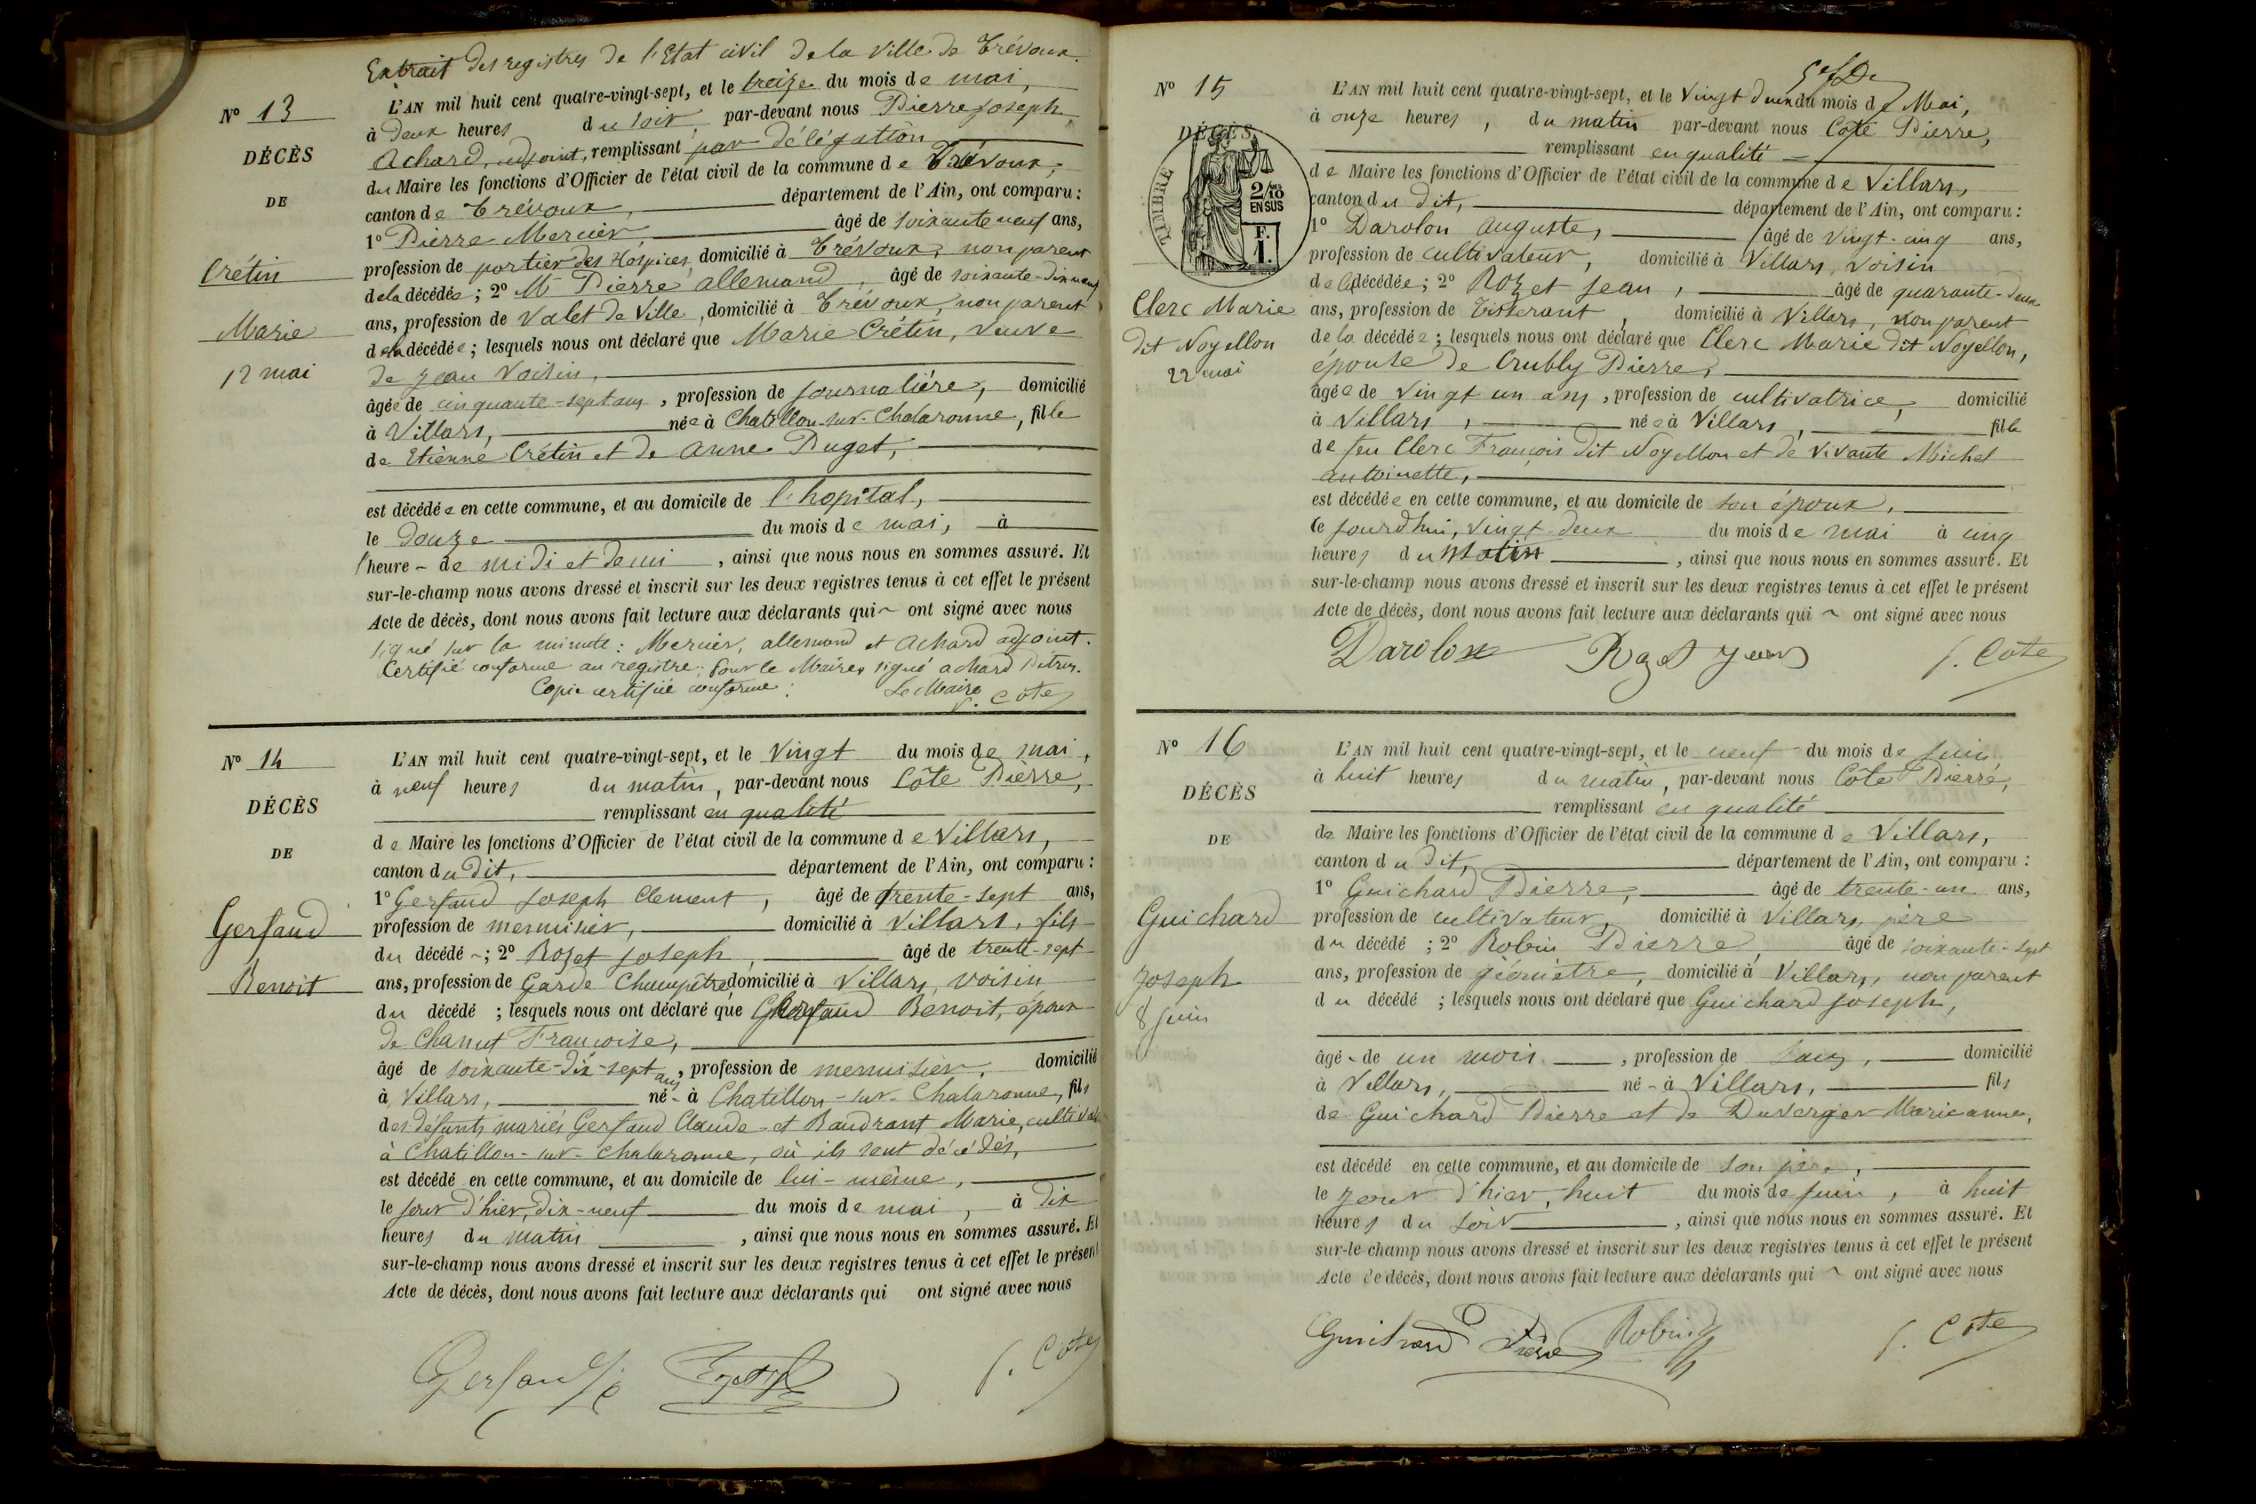 Extrait des registres de l'Etat civil de la ville de Trévoux.
N° 13
DÉCÈS
DE
Crétin
Marie
12 mai
L'AN mil huit cent quatre-vingt-sept, et le treize du mois de mai,
à deux heures du soir, par-devant nous Pierre Joseph
Achard, adjoint, remplissant par délégation
du Maire les fonctions d'Officier de l'état civil de la commune de Trévoux,
canton de Trévoux, département de l'Ain, ont comparu :
1° Pierre Mercier, âgé de soixante neuf ans,
profession de portier des Hospices, domicilié à Trévoux, non parent
de la décédée ; 2° Mr Pierre allemand, âgé de soixante-dix neuf
ans, profession de Valet de Ville, domicilié à Trévoux, non parent
de la décédée ; lesquels nous ont déclaré que Marie Crétin, veuve
de Jean Voisin,
âgée de cinquante-sept ans, profession de journalière, domicilié
à Villars, née à Chatillon-sur-Chalaronne, fille
de Etienne Crétin et de Anne Puget,
est décédée en cette commune, et au domicile de l'hopital,
le douze du mois de mai, à
l'heure - de midi et demi, ainsi que nous nous en sommes assuré. Et
sur-le-champ nous avons dressé et inscrit sur les deux registres tenus à cet effet le présent
Acte de décès, dont nous avons fait lecture aux déclarants qui ~ ont signé avec nous
signé sur la minute : Mercier, allemand et Achard adjoint.
Certifié conforme au registre : Pour le Maire, signé achard
Copie certifiée conforme :
Le Maire
P. Cote
N° 14
DÉCÈS
DE
Gerfaud
Benoit
L'AN mil huit cent quatre-vingt-sept, et le Vingt du mois de mai,
à neuf heures du matin, par-devant nous Côte Pierre,
remplissant en qualité
de Maire les fonctions d'Officier de l'état civil de la commune de Villars,
canton du dit, département de l'Ain, ont comparu :
1° Gerfaud Joseph Clement, âgé de trente-sept ans,
profession de menuisier, domicilié à Villars, fils
du décédé ~ ; 2° Rozet Joseph, âgé de trente-sept
ans, profession de Garde Champêtre, domicilié à Villars, voisin
du décédé ; lesquels nous ont déclaré que Gerfaud Benoit, époux
de Chanut Françoise,
âgé de soixante-dix-sept ans, profession de menuisier, domicilié
à Villars, né - à Chatillon-sur-Chalaronne, fils
des défunts mariés Gerfaud Claude et Baudrant Marie,
à Chatillon-sur-Chalaronne, où ils sont décédés,
est décédé en cette commune, et au domicile de lui-même,
le jour d'hier, dix-neuf du mois de mai, à dix
heures du matin, ainsi que nous nous en sommes assuré. Et
sur-le-champ nous avons dressé et inscrit sur les deux registres tenus à cet effet le présent
Acte de décès, dont nous avons fait lecture aux déclarants qui ont signé avec nous
P. Cote
N° 15
DÉCÈS
TIMBRE
2/10
EN SUS
F.
1.
Clerc Marie
dit Noyellon
22 mai
L'AN mil huit cent quatre-vingt-sept, et le Vingt deux du mois de Mai,
à onze heures, du matin par-devant nous Cote Pierre,
remplissant en qualité
de Maire les fonctions d'Officier de l'état civil de la commune de Villars,
canton du dit, département de l'Ain, ont comparu :
1° Darolon Auguste, âgé de vingt-cinq ans,
profession de cultivateur, domicilié à Villars, voisin
de la décédée ; 2° Rozet Jean, âgé de quarante-deux
ans, profession de Tisserant, domicilié à Villars, non parent
de la décédée ; lesquels nous ont déclaré que Clerc Marie dit Noyellon,
épouse de Crubly Pierre,
âgée de vingt un ans, profession de cultivatrice, domicilié
à Villars, née à Villars, fille
de feu Clerc François dit Noyellon et de vivante Michel
antoinette,
est décédée en cette commune, et au domicile de son époux,
ce jourd'hui, vingt-deux du mois de mai à cinq
heures du Matin, ainsi que nous nous en sommes assuré. Et
sur-le-champ nous avons dressé et inscrit sur les deux registres tenus à cet effet le présent
Acte de décès, dont nous avons fait lecture aux déclarants qui ~ ont signé avec nous
Darolon Rozet Jean P. Cote
N° 16
DÉCÈS
DE
Guichard
Joseph
8 juin
L'AN mil huit cent quatre-vingt-sept, et le neuf du mois de juin
à huit heures du matin, par-devant nous Côte Pierre,
remplissant en qualité
de Maire les fonctions d'Officier de l'état civil de la commune de Villars,
canton du dit, département de l'Ain, ont comparu :
1° Guichard Pierre, âgé de trente-un ans,
profession de cultivateur, domicilié à Villars, père
du décédé ; 2° Robin Pierre, âgé de soixante-sept
ans, profession de géomètre, domicilié à Villars, non parent
du décédé ; lesquels nous ont déclaré que Guichard Joseph,
âgé - de un mois, profession de sans, domicilié
à Villars, né - à Villars, fils
de Guichard Pierre et de Duverger Marie anne,
est décédé en cette commune, et au domicile de son père,
le jour d'hier, huit du mois de juin, à huit
heures du soir, ainsi que nous nous en sommes assuré. Et
sur-le-champ nous avons dressé et inscrit sur les deux registres tenus à cet effet le présent
Acte de décès, dont nous avons fait lecture aux déclarants qui ~ ont signé avec nous
Guichard Pierre Robin P. Cote